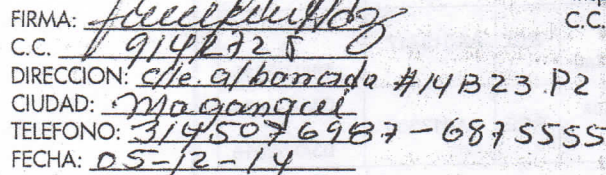 FIRMA:
C.C. C.C.
DIRECCION: c/e. albarrada #14B23.P2
CIUDAD: Magangué
TELEFONO: 3145076987-6875555
FECHA: 05-12-14